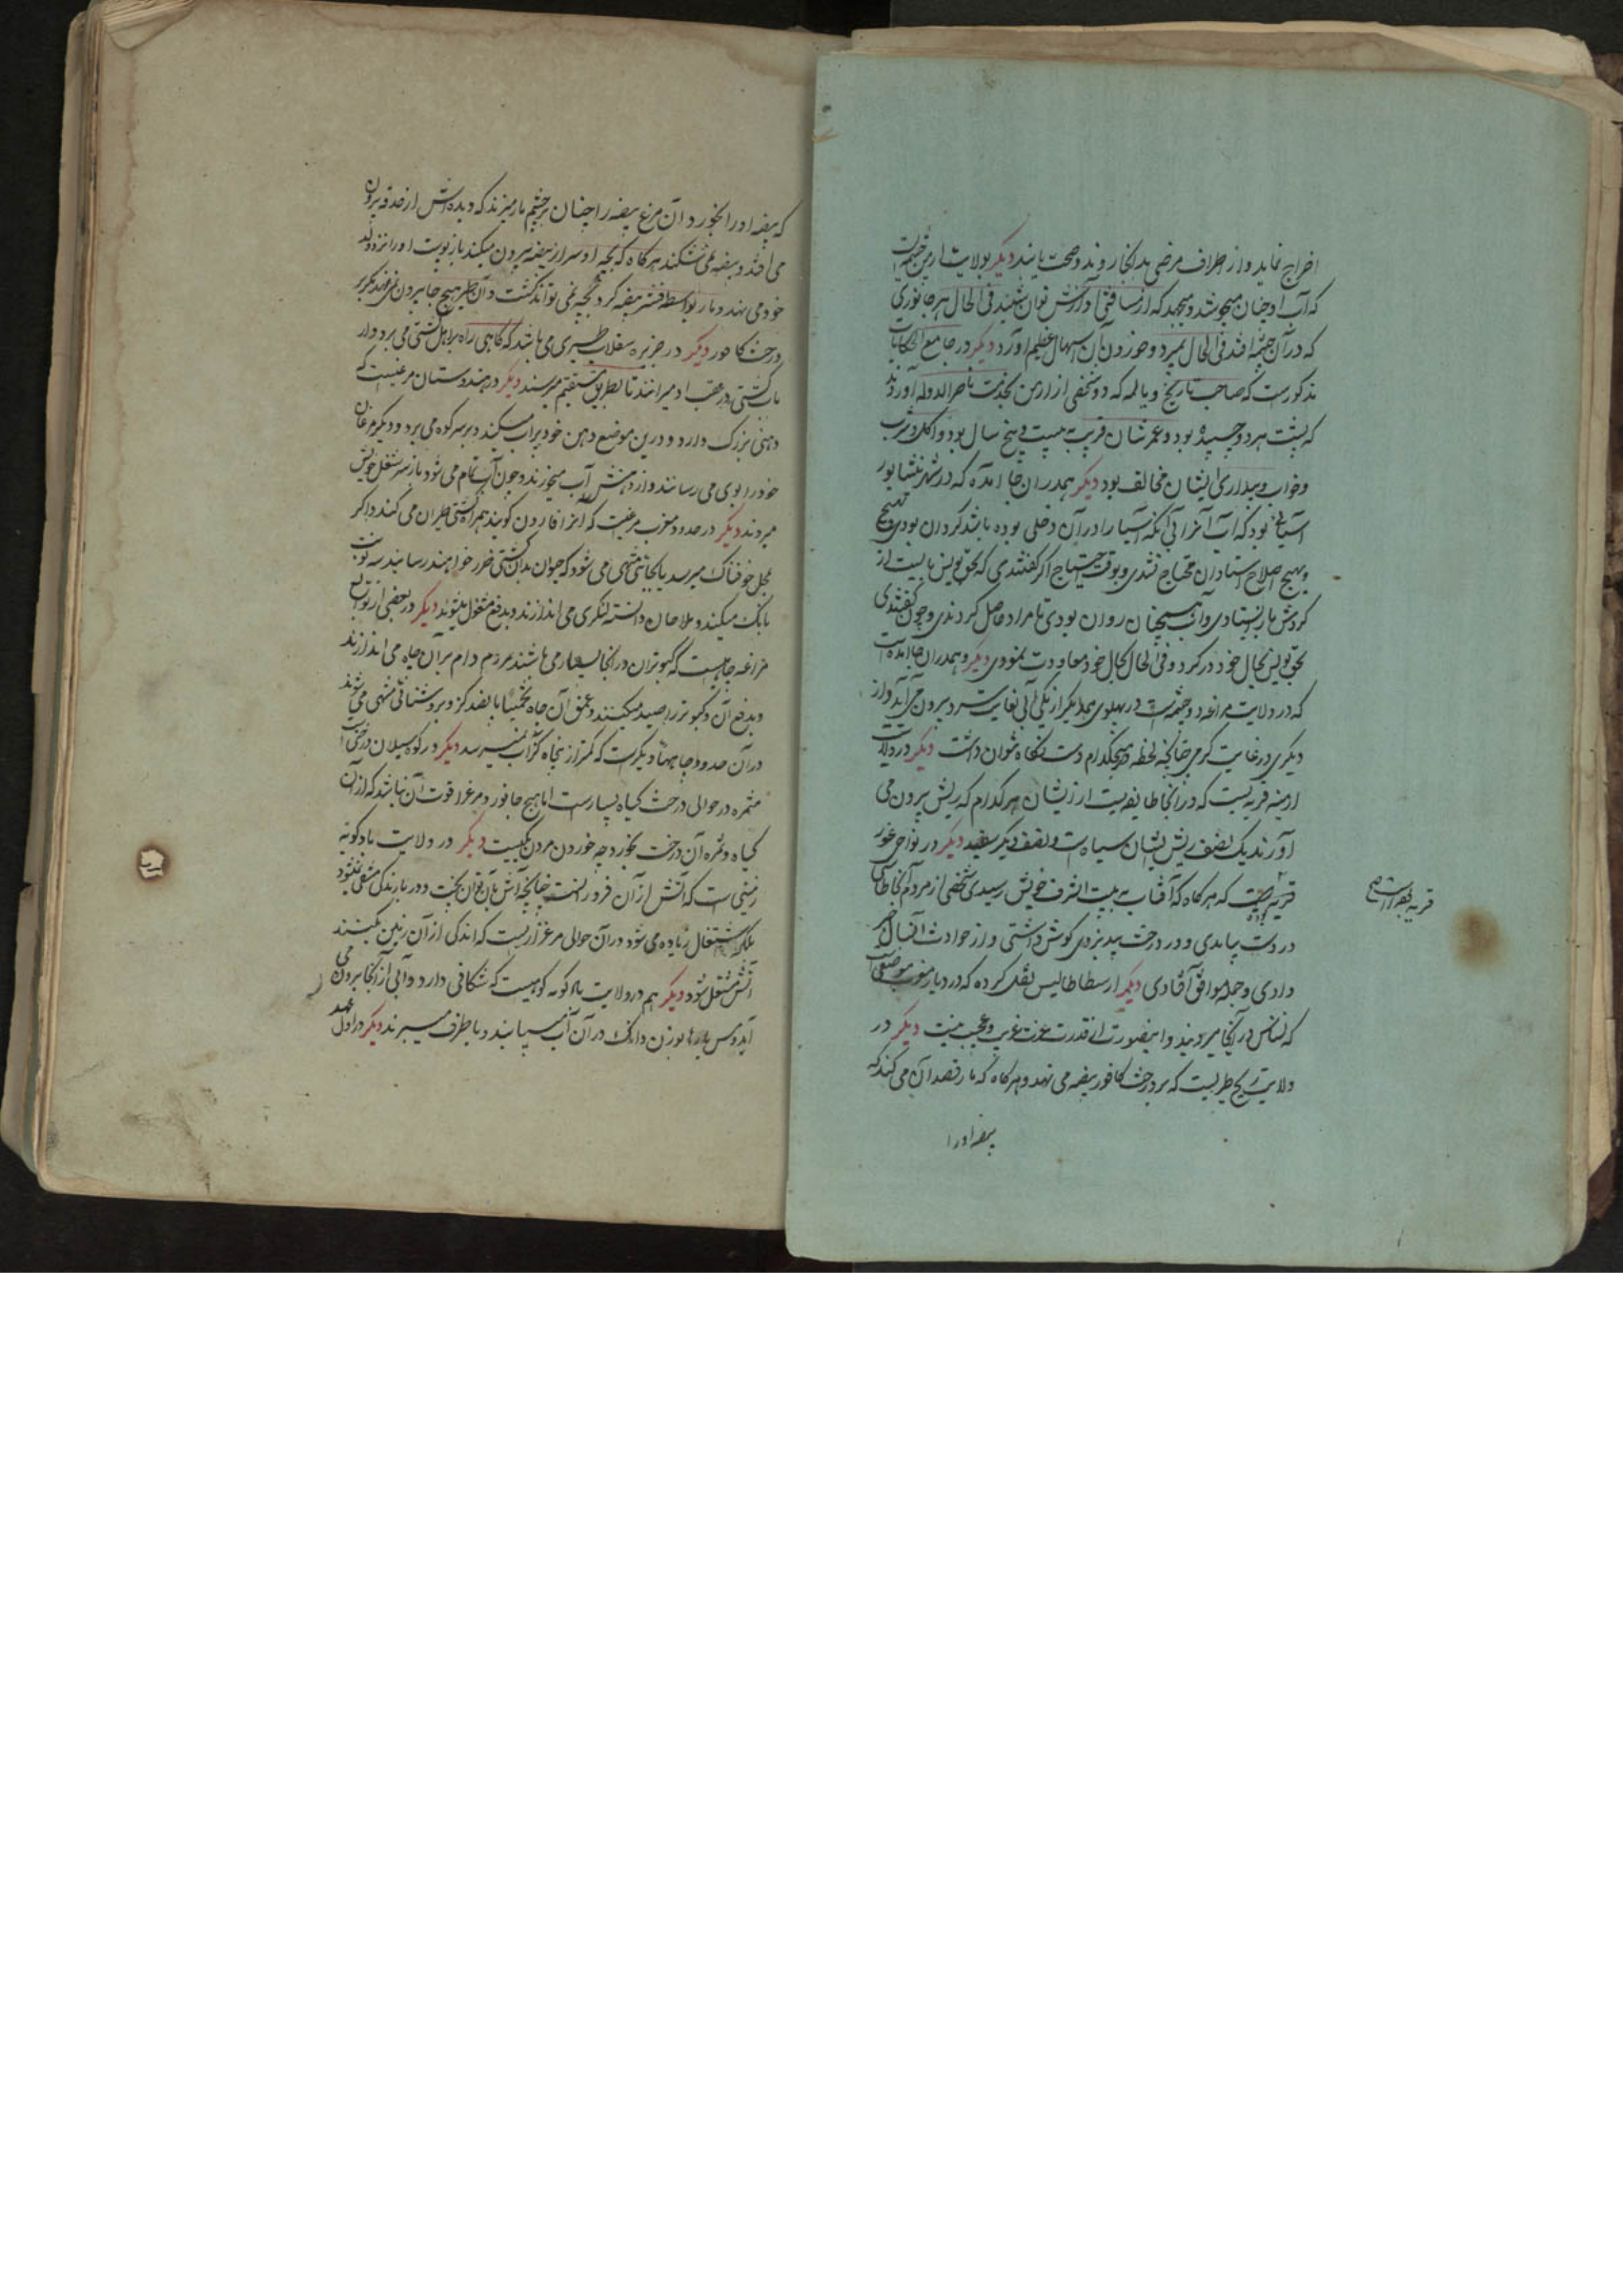 اخراج نماید و از اطراف مرضی بدانجا روند و صحت یابند دیگر بولایت ارمن چشمه‌ایست
که آب او چنان میجوشد و میجهد که از مسافتی آوازش توان شنید فی الحال هر جانوری
که در آن چشمه افتد فی الحال بمیرد و خوردن آن اسهال عظیم آورد دیگر در جامع الحکایات
مذکورست که صاحب تاریخ و یالمه که دو شخص از ارمن بخدمت ناصرالدوله آوردند
که پشت هر دو چسپیده بود و عمرشان قریب به بیست و پنج سال بود و اکل و شرب
و خواب و بیداری ایشان مخالف بود دیگر همدران جا آمده که در شهر نیشابور
آسیائی بود که آب آنرا بی آنکه آسیا را در آن دخلی بوده باشد گردان بودی و هیچ
و بهیچ اصلاح استادان محتاج نشدی و بوقت احتیاج اگر گفتندی که بحق یونس بایست از
گردش باز ایستادی و آب همچنان روان بودی تا مراد حاصل کردندی و چون گفتندی
بحق یونس بحال خود در گرد و فی الحال بحال خود معاودت نمودی دیگر و همدران جا آمده است
که در ولایت مراغه دو چشمه است در پهلوی یکدیگر از یکی آبی بغایت سرد بیرون می آید و از
دیگری در غایت گرمی چنانچه لحظه در هیچکدام دست نگاه نتوان داشت دیگر در ولایت
ارمنیه قریه ایست که در آنجا طایفه ایست از ایشان هر کدام که ریش بیرون می
آورند یک نصف ریش ایشان سیاه است و نصف دیگر سفید دیگر در نواحی غور
قریه ایست که هر گاه که آفتاب به بیت الشرف خویش رسیدی شخصی از مردم آنجا طاسی
در دست بیامدی و در درخت بید بزدی گوش داشتی و از حوادث آنسال خبر
دادی و جمله موافق افتادی دیگر ارسطاطالیس نقل کرده که در دیار مغرب موضعی است
که نسناس در آنجا میرویند و اینصورت از قدرت عزت غریب و عجیب نیست دیگر در
ولایت زنج طیریست که بر درخت کافور بیضه می نهد و هر گاه که مار قصد آن می کند که
بیضه او را
که بیضه او را بخورد آن مرغ بیضه را چنان بر چشم مار میزند که دیده اش از حدقه بیرون
می افتد و بیضه نمی شکند هر گاه که بچه او سر از بیضه بیرون میکند باز نوبت او را نزد ولد
خود می نهد و مار بواسطه قشر بیضه گرد بچه نمی تواند گشت و آن طیر هیچ جا بیرون نمی نهد مگر بر
درخت کافور دیگر در جزیره سقلاب طیری می باشد که گاهی راه بر اهل کشتی می برد و ار
باب کشتی در عقب او میرانند تا بطریق مستقیم میرسند دیگر در هندوستان مرغیست که
دهنی بزرگ دارد و درین موضع دهن خود پر آب میکند و بر سر کوه می برد و دیگر مرغان
خود را بوی می رسانند و از دهنش آب میخورند و چون آب تمام می شود باز بسر شغل خویش
میروند دیگر در حدود مغرب مرغیست که آنرا قارون گویند همراه کشتی طیران می کند و اگر
بمحل خوفناک میرسد یا بجائی منتهی می شود که حیوان بدان کشتی ضرر خواهند رسانید سه نوبت
بانک میکند و ملاحان دانسته لنگری می اندازند و بدفع مشغول میشوند دیگر در بعضی از توابع
مراغه چاهیست که کبوتران در آنجا بسیار می باشند مردم دام بر آن چاه می اندازند
و بدفع آن کبوتر را صید میکنند و عمق آن چاه تخمینا پانصد گز و بروشنائی منتهی می شوند
در آن حدود چاههاء دیگرست که کمتر از پنجاه گز آب نمیرسد دیگر در کوه سبلان درختی است
مثمره در حوالی درخت گیاه بسیارست اما هیچ جانور و مرغ را قوت آن نباشد که از آن
گیاه و ثمره آن درخت بخورد چه خوردن مردن یکیست دیگر در ولایت بادکوبه
زمینی است که آتش از آن فروزانست چنانچه آش بآن توان پخت و در بارندگی منتفی نشود
بلکه اشتعال زیاده می شود در آن حوالی مرغزاریست که اندکی از آن زمین بکنند
آتش مشتعل شود دیگر هم در ولایت بادکوبه کوهیست که شکافی دارد و آبی از آنجا بیرون می
آید و مس پارها بوزن دانک در آن آب میابند و باطراف میبرند دیگر در اول عهد